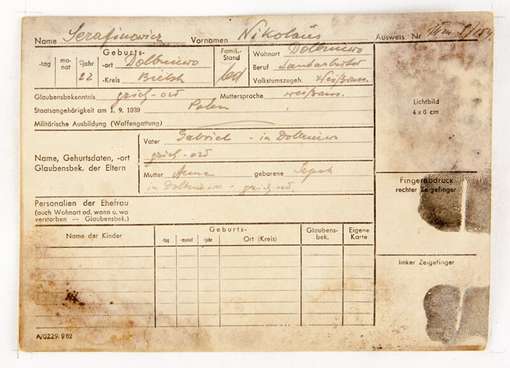 Name Serafinowicz Vornamen Nikolaus Ausweis Nr.
-tag mo-nat -jahr Geburts- Famil.-Stand Wohnort
22 -ort
-Kreis Bielsk led Beruf Landarbeiter
Volkstumszugeh. Weißruss.
Glaubensbekenntnis griech-ord Muttersprache weißruss.
Staatsangehörigkeit am 1. 9. 1939 Polen
Militärische Ausbildung (Waffengattung)
Lichtbild
4 x 6 cm
Name, Geburtsdaten, -ort
Glaubensbek. der Eltern
Vater Gabriel - in
griech-ord
Mutter Anna geborene
in - griech-ord
Fingerabdruck
rechter Zeigefinger
Personalien der Ehefrau
(auch Wohnort od. wann u. wo
verstorben — Glaubensbek.)
Name der Kinder Geburts- Glaubens-bek. Eigene Karte
-tag -monat -jahr Ort (Kreis)
linker Zeigefinger